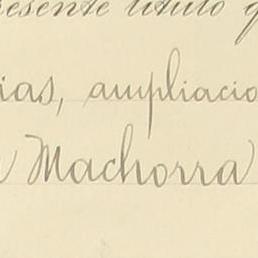 resente titulo q
ias, ampliacio
Machorra